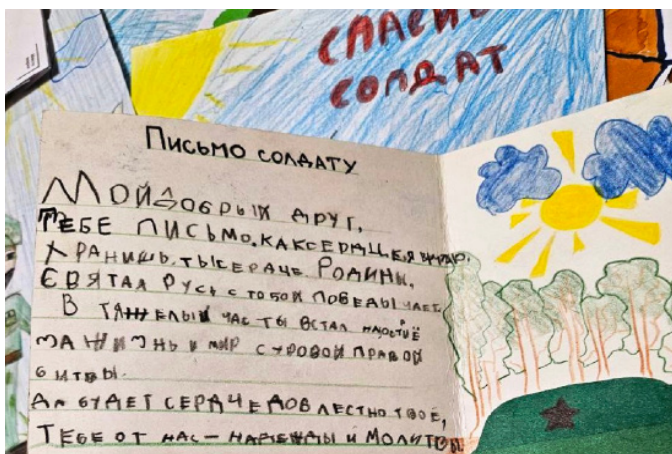 СПАСИБ
СОЛДАТ
ПИСЬМО СОЛДАТУ
МОЙ ДОБРЫЙ ДРУГ,
ТЕБЕ ПИСЬМО, КАК СЕРДЦЕ, Я
ХРАНИШЬ ТЫ СЕРДЧЕ РОДИНЫ,
СВЯТАЯ РУСЬ С ТОБОЙ ПОБЕДЫ ЧАЕТ.
В ТЯЖЕЛЫЙ ЧАС ТЫ ВСТАЛ
ЖИЗНЬ И МИР СУРОВОЙ ПРАВОЙ
БИТВЫ.
ДА БУДЕТ СЕРДЧЕ ДОБЛЕСТНО ТВОЁ,
ТЕБЕ ОТ НАС – НАДЕЖДЫ И МОЛИТВЫ.